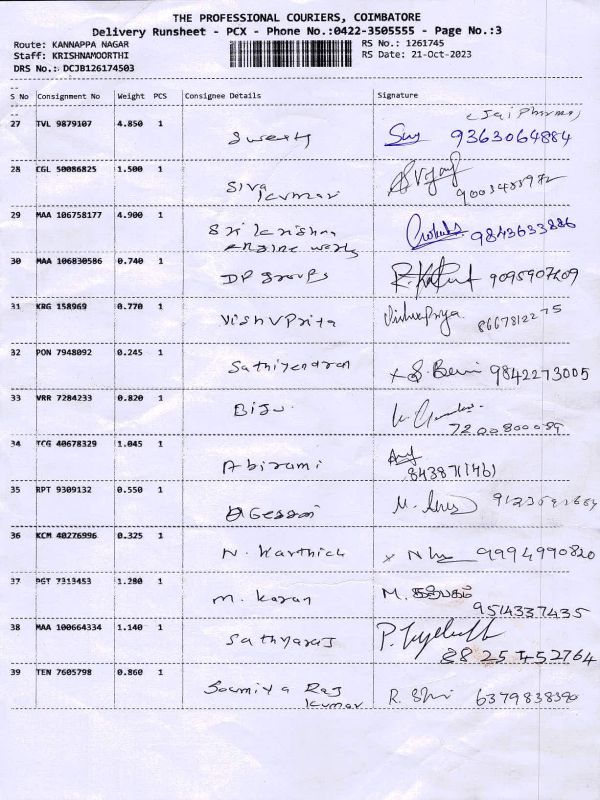 THE PROFESSIONAL COURIERS, COIMBATORE
Delivery Runsheet - PCX - Phone No.:0422-3505555 - Page No.:3
Route: KANNAPPA NAGAR RS No.: 1261745
Staff: KRISHNAMOORTHI RS Date: 21-Oct-2023
DRS No.: DCJB126174503
S No Consignment No Weight PCS Consignee Details Signature
(Jai Pharma)
27 TVL 9879107 4.850 1
Sweety 9363064884
28 CGL 50086825 1.500 1
Siva
kumar
29 MAA 106758177 4.900 1
Sri krishna 9843633886
engine works
30 MAA 106830586 0.740 1
DP groups
31 KRG 158969 0.770 1 Vishnupriya
Vishvprita 8667812275
32 PON 7948092 0.245 1
Sathiyendran 9842273005
33 VRR 7284233 0.820 1
Biju
7200800089
34 TCG 40678329 1.045 1
Abirami
35 RPT 9309132 0.550 1
36 KCM 40276996 0.325 1
N. Karthick x 9994990820
37 PGT 7313453 1.280 1 M.
M. Karan 9514337435
38 MAA 100664334 1.140 1
Sathyaraj 8825452764
39 TEN 7605798 0.860 1
Soumiya Raj R. 6379838390
kumar